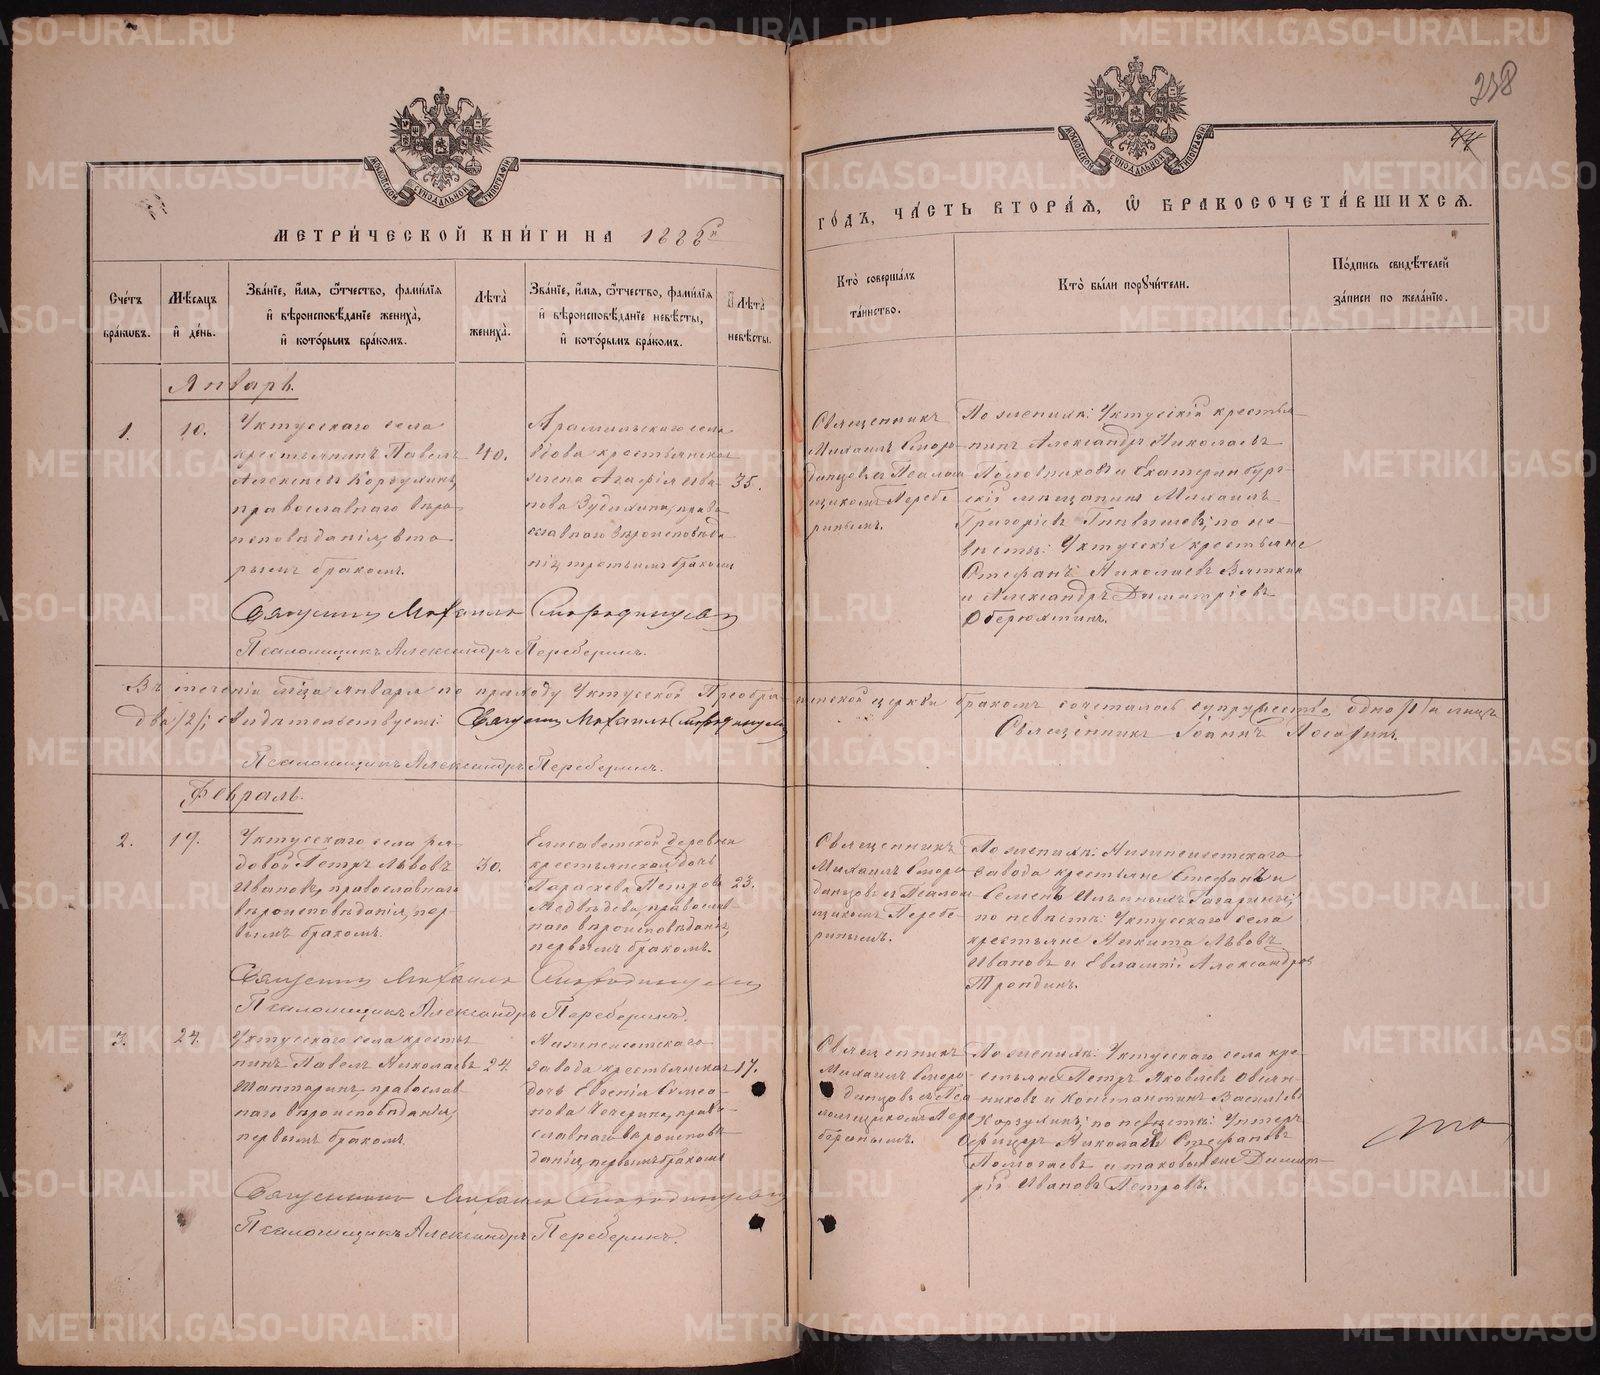 МЕТРИ́ЧЕСКОЙ КНИ́ГИ НА 1886й
ГО́ДЪ, ЧА́СТЬ ВТОРА́Я, Ѽ БРАКОСОЧЕТА́ВШИХСЯ.
238
Сче́тъ бра́кѡвъ.
Мѣ́сяцъ и҆ де́нь.
Зва́нїе, и҆́мя, ѻ҆́тчество, фами́лїя и҆ вѣроисповѣ́данїе жениха̀, и҆ кото́рымъ бра́комъ.
Лѣ́та жениха̀.
Зва́нїе, и҆́мя, ѻ҆́тчество, фами́лїя и҆ вѣроисповѣ́данїе невѣ́сты, и҆ кото́рымъ бра́комъ.
Лѣта̀ невѣ́сты.
Кто̀ соверша́лъ та́инство.
Кто̀ бы́ли порꙋчи́тели.
По́дпись свидѣ́телей за́писи по жела́нїю.
Январь.
1.
10.
Уктусскаго села
крестьянинъ Павелъ
Алексѣевъ Корзухинъ,
православнаго вѣро-
исповѣданія, вто-
рымъ бракомъ.
40.
Арамильскаго села
вдова крестьянская
жена Агафія Ива-
нова Зудихина, право-
славнаго вѣроисповѣда
нія, третьимъ бракомъ
35.
Священникъ
Михаилъ Сморо-
динцевъ съ Псалом
щикомъ Перебе
ринымъ.
По женихѣ: Уктусскій крестья-
нинъ Александръ Николаевъ
Половниковъ и Екатеринбург-
скій мѣщанинъ Михаилъ
Григорьевъ по не-
вѣстѣ: Уктусскіе крестьяне
Стефанъ Николаевъ Вяткинъ
и Александръ Димитріевъ
Оберюхтинъ.
Священникъ Михаилъ Смородинцевъ
Псаломщикъ Александръ Переберинъ.
Въ теченіи мѣсяца января по приходу Уктусской Преобра-женской церкви бракомъ сочеталось супружество одно /1/ а лицъ
два /2/; свидѣтельствуемъ: Священникъ Михаилъ Смородинцевъ
Священникъ Іоаннъ
Псаломщикъ Александръ Переберинъ.
Февраль.
2.
17.
Уктусскаго села ря-
довой Петръ Львовъ
Ивановъ, православнаго
вѣроисповѣданія, пер-
вымъ бракомъ.
30.
Елисаветской деревни
крестьянская дочь
Параскева Петрова
Медвѣдева, православ-
наго вѣроисповѣданія,
первымъ бракомъ.
23.
Священникъ
Михаилъ Сморо
динцевъ съ Псалом
щикомъ Перебе-
ринымъ.
По женихѣ: Нижнеисетскаго
завода крестьяне Стефанъ и
Семенъ Ильины Гагарины;
по невѣстѣ: Уктусскаго села
крестьяне Никита Львовъ
Ивановъ и Евлампій Александровъ
Трондинъ.
Священникъ Михаилъ Смородинцевъ
Псаломщикъ Александръ Переберинъ.
3.
24.
Уктусскаго села крестья
нинъ Павелъ Николаевъ
православ-
наго вѣроисповѣданія,
первымъ бракомъ.
24
Нижнеисетскаго
завода крестьянская
дочь Евгенія Симео-
нова Чечерина, право-
славнаго вѣроисповѣ
данія, первымъ бракомъ
17.
Священникъ
Михаилъ Сморо-
динцовъ съ Пса
ломщикомъ Пере
беринымъ.
По женихѣ: Уктусскаго села кре-
стьяне Петръ Яковлевъ Овчин-
никовъ и Константинъ Васильевъ
Корзухинъ; по невѣстѣ: Унтеръ
Офицеръ Николай Стефановъ
и таковый же Димит-
рій Ивановъ Петровъ.
Священникъ Михаилъ Смородинцевъ
Псаломщикъ Александръ Переберинъ.